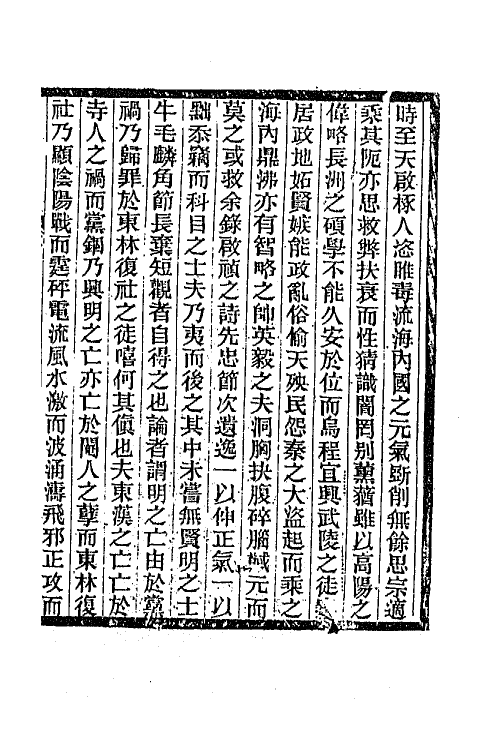 時至天啟椓人恣雎毒流海內國之元氣斲削無餘思宗適
乘其阨亦思救弊扶衰而性猜識闇罔別薰蕕雖以高陽之
偉略長洲之碩學不能久安於位而烏程宜興武陵之徒
居政地妬賢嫉能政亂俗偷天殃民怨秦之大盜起而乘之
海內鼎沸亦有智略之帥英毅之夫洞胸抉腹碎腦馘元而
莫之或救余錄啟禎之詩先忠節次遺逸一以伸正氣一以
黜忝竊而科目之士夫乃夷而後之其中未嘗無賢明之士
牛毛麟角節長棄短觀者自得之也論者謂明之亡由於黨
禍乃歸罪於東林復社之徒嘻何其傎也夫東漢之亡亡於
寺人之禍而黨錮乃興明之亡亦亡於閹人之孽而東林復
社乃顯陰陽戰而霆砰電流風水激而波涌濤飛邪正攻而